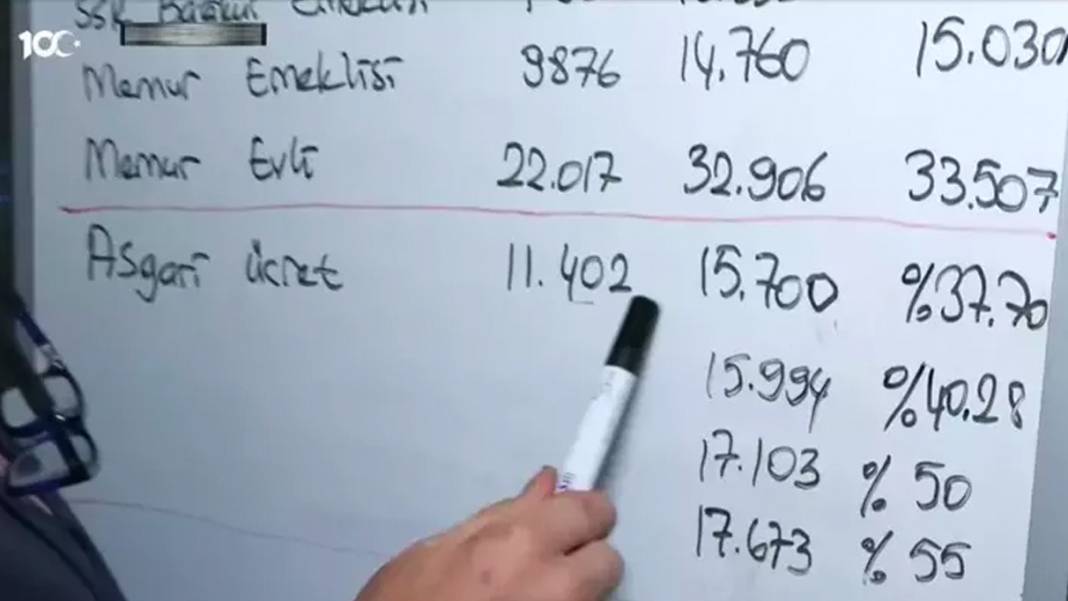 SSK Bağkur Emeklisi
100
Memur Emeklisi 9876 14.760 15.030
Memur Evli 22.017 32.906 33.507
Asgari ücret 11.402 15.700 %37.70
15.994 %40.28
17.103 % 50
17.673 % 55